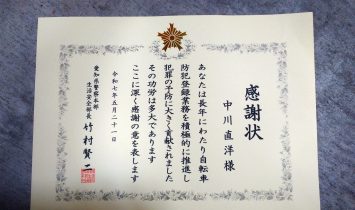 感謝状
中川直洋様
あなたは長年にわたり自転車
防犯登録業務を積極的に推進し
犯罪の予防に大きく貢献されました
その功労は多大であります
ここに深く感謝の意を表します
令和七年五月二十一日
愛知県警察本部
生活安全部長 竹村賢二